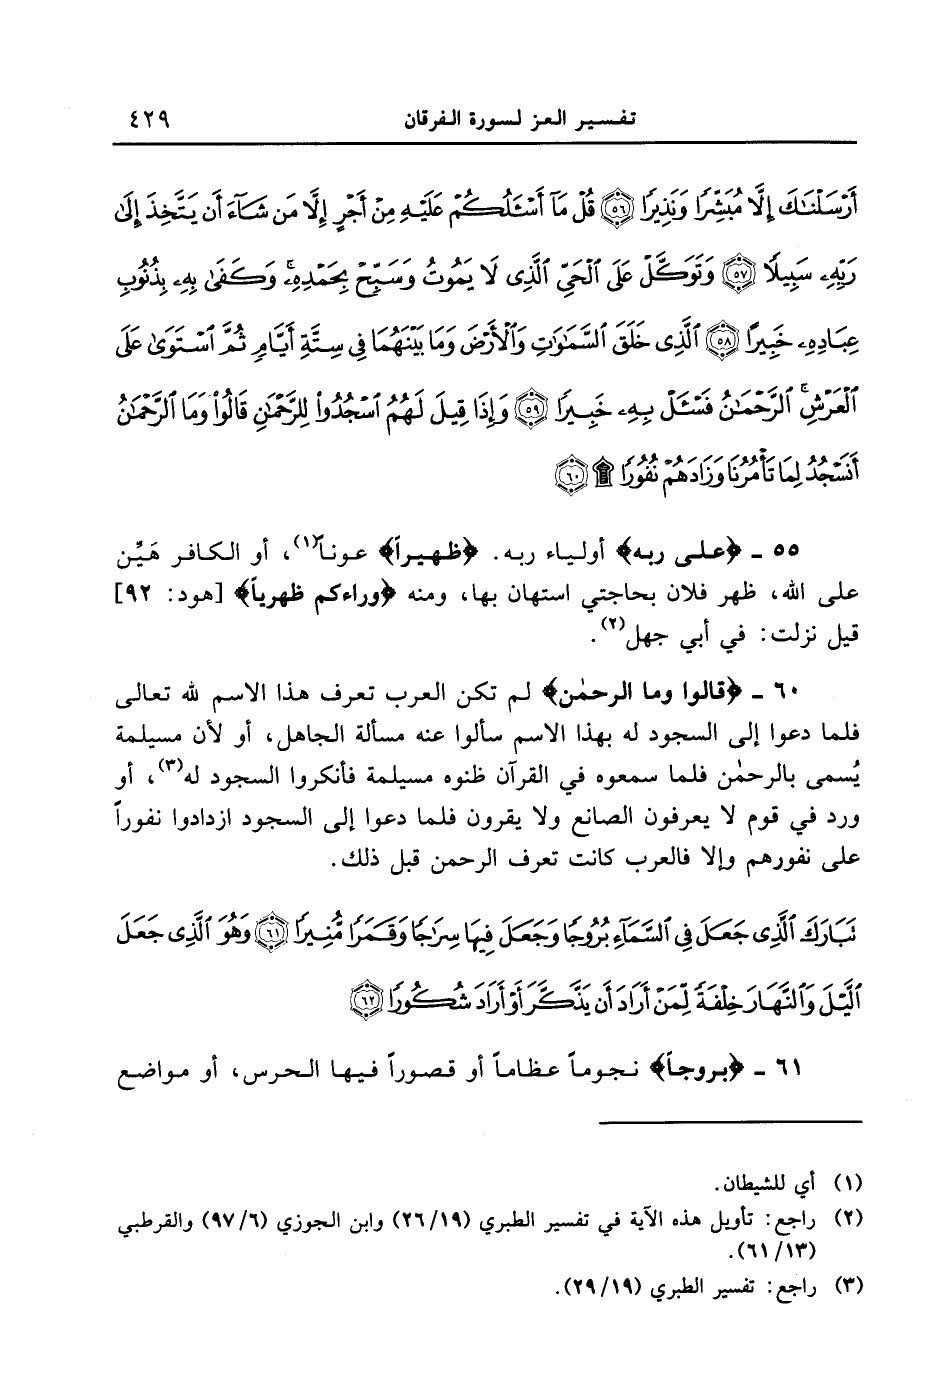 تفسير العز لسورة الفرقان ٤٢٩
أَرْسَلْنَٰكَ إِلَّا مُبَشِّرًا وَنَذِيرًا ٥٦ قُلْ مَآ أَسْـَٔلُكُمْ عَلَيْهِ مِنْ أَجْرٍ إِلَّا مَن شَآءَ أَن يَتَّخِذَ إِلَىٰ
رَبِّهِۦ سَبِيلًا ٥٧ وَتَوَكَّلْ عَلَى ٱلْحَىِّ ٱلَّذِى لَا يَمُوتُ وَسَبِّحْ بِحَمْدِهِۦۚ وَكَفَىٰ بِهِۦ بِذُنُوبِ
عِبَادِهِۦ خَبِيرًا ٥٨ ٱلَّذِى خَلَقَ ٱلسَّمَٰوَٰتِ وَٱلْأَرْضَ وَمَا بَيْنَهُمَا فِى سِتَّةِ أَيَّامٍ ثُمَّ ٱسْتَوَىٰ عَلَى
ٱلْعَرْشِۚ ٱلرَّحْمَٰنُ فَسْـَٔلْ بِهِۦ خَبِيرًا ٥٩ وَإِذَا قِيلَ لَهُمُ ٱسْجُدُوا۟ لِلرَّحْمَٰنِ قَالُوا۟ وَمَا ٱلرَّحْمَٰنُ
أَنَسْجُدُ لِمَا تَأْمُرُنَا وَزَادَهُمْ نُفُورًا ۩ ٦٠
٥٥ - ﴿على ربه﴾ أولياء ربه. ﴿ظهيراً﴾ عوناً(١)، أو الكافر هَيِّن
على الله، ظهر فلان بحاجتي استهان بها، ومنه ﴿وراءكم ظهرياً﴾ [هود: ٩٢]
قيل نزلت: في أبي جهل(٢).
٦٠ - ﴿قالوا وما الرحمٰن﴾ لم تكن العرب تعرف هذا الاسم لله تعالى
فلما دعوا إلى السجود له بهذا الاسم سألوا عنه مسألة الجاهل، أو لأن مسيلمة
يُسمى بالرحمٰن فلما سمعوه في القرآن ظنوه مسيلمة فأنكروا السجود له(٣)، أو
ورد في قوم لا يعرفون الصانع ولا يقرون فلما دعوا إلى السجود ازدادوا نفوراً
على نفورهم وإلا فالعرب كانت تعرف الرحمن قبل ذلك.
تَبَارَكَ ٱلَّذِى جَعَلَ فِى ٱلسَّمَآءِ بُرُوجًا وَجَعَلَ فِيهَا سِرَٰجًا وَقَمَرًا مُّنِيرًا ٦١ وَهُوَ ٱلَّذِى جَعَلَ
ٱلَّيْلَ وَٱلنَّهَارَ خِلْفَةً لِّمَنْ أَرَادَ أَن يَذَّكَّرَ أَوْ أَرَادَ شُكُورًا ٦٢
٦١ - ﴿بروجاً﴾ نجوماً عظاماً أو قصوراً فيها الحرس، أو مواضع
(١) أي للشيطان.
(٢) راجع: تأويل هذه الآية في تفسير الطبري (٢٦/١٩) وابن الجوزي (٩٧/٦) والقرطبي
(٦١/١٣).
(٣) راجع: تفسير الطبري (٢٩/١٩).